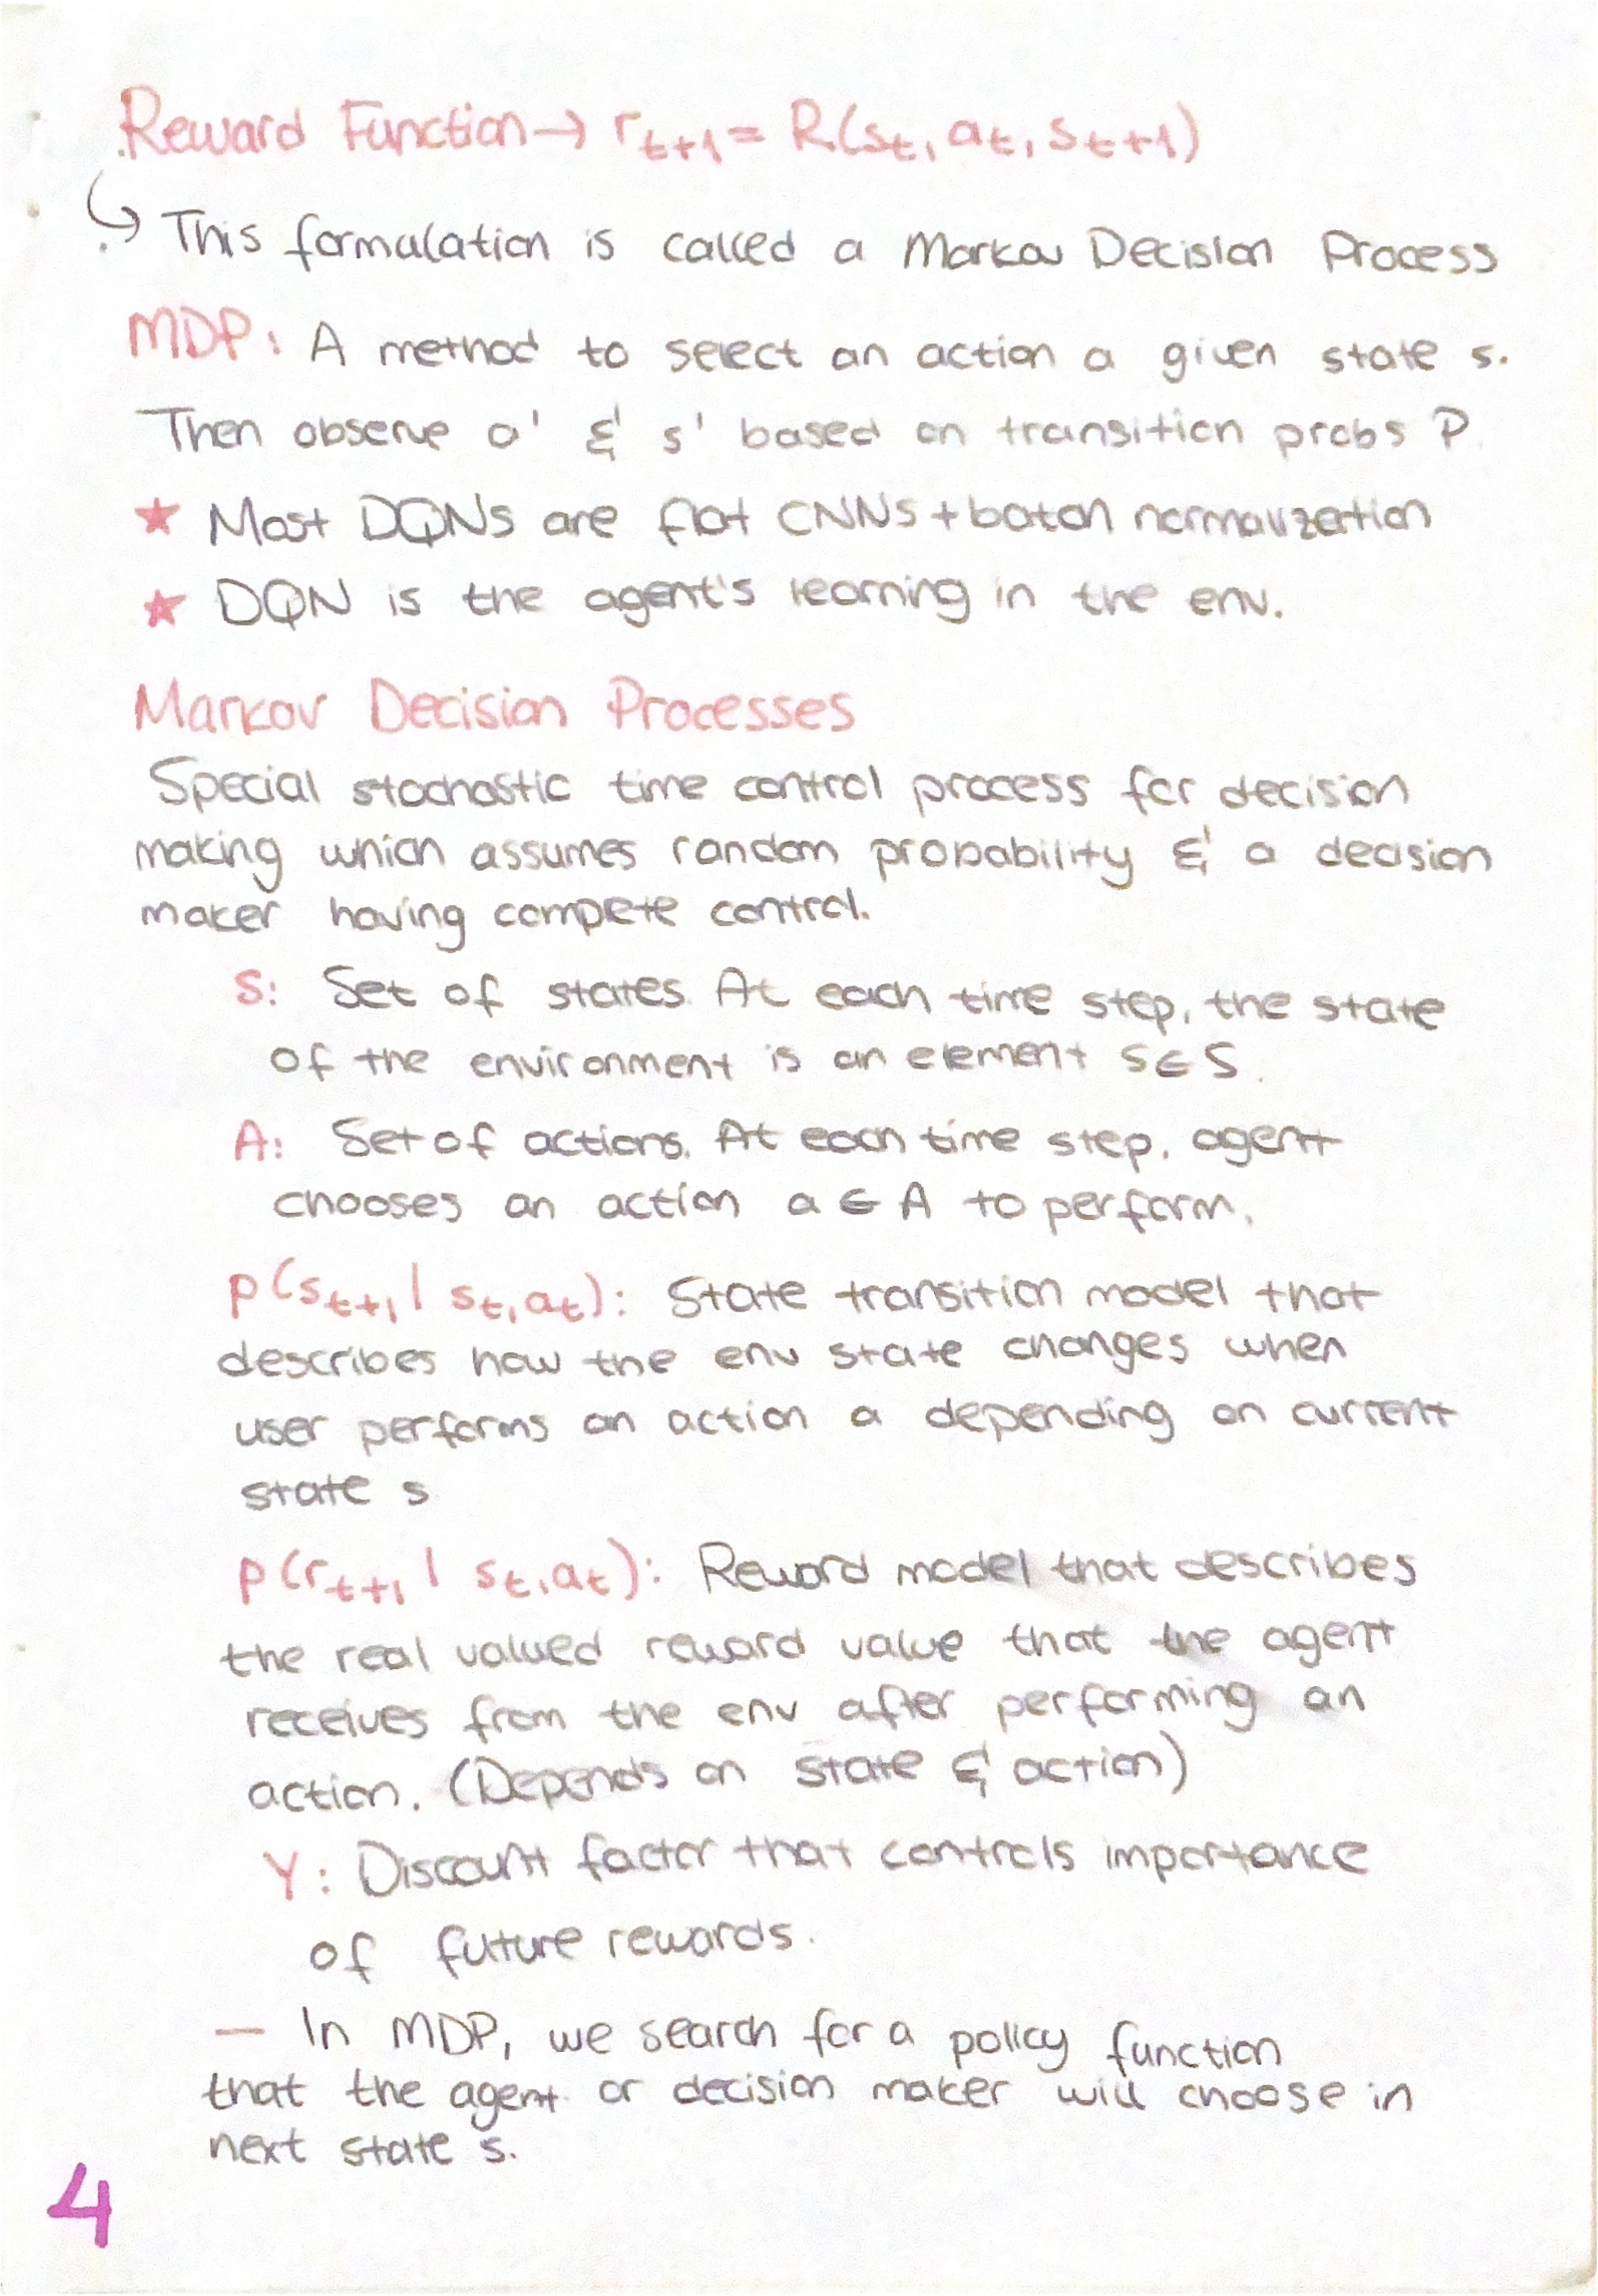 Reward Function → r_{t+1} = R(s_t, a_t, s_{t+1})
↳ This formulation is called a Markov Decision Process
MDP: A method to select an action a given state s.
Then observe a' & s' based on transition probs P.
★ Most DQNs are flat CNNs + batch normalization
★ DQN is the agent's learning in the env.
Markov Decision Processes
Special stochastic time control process for decision
making which assumes random probability & a decision
maker having compete control.
S: Set of states. At each time step, the state
of the environment is an element s ∈ S.
A: Set of actions. At each time step, agent
chooses an action a ∈ A to perform.
p(s_{t+1} | s_t, a_t): State transition model that
describes how the env state changes when
user performs an action a depending on current
state s
p(r_{t+1} | s_t, a_t): Reward model that describes
the real valued reward value that the agent
receives from the env after performing an
action. (Depends on state & action)
γ: Discount factor that controls importance
of future rewards.
— In MDP, we search for a policy function
that the agent or decision maker will choose in
next state s.
4